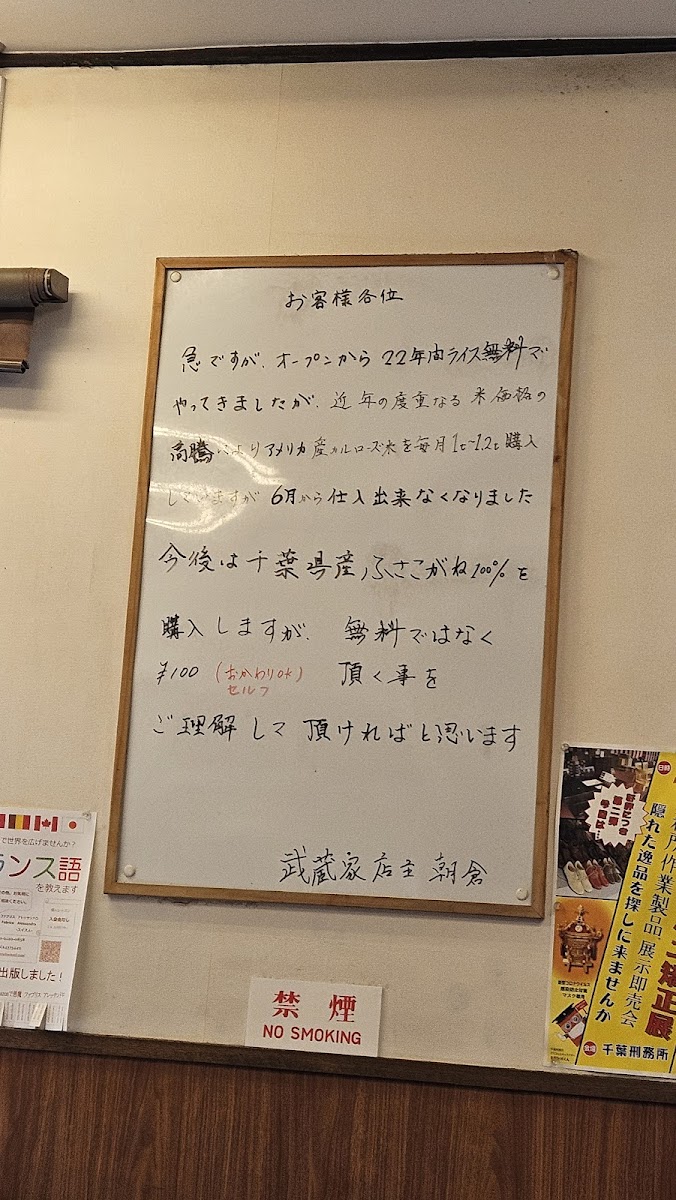 お客様各位
急ですが、オープンから22年間ライス無料で
やってきましたが、近年の度重なる米価格の
高騰によりアメリカ産カルローズ米を毎月1t~1.2t購入
していますが6月から仕入出来なくなりました
今後は千葉県産ふさこがね100%を
購入しますが、無料ではなく
¥100 (おかわりOK) 頂く事を
セルフ
ご理解して頂ければと思います
武蔵家店主 朝倉
で世界を広げませんか?
ランス語
を教えます
出版しました!
禁煙
NO SMOKING
日時
好評につき
第二弾
今度は…
矯正展
作業製品 展示即売会
隠れた逸品を探しに来ませんか
会場 千葉刑務所